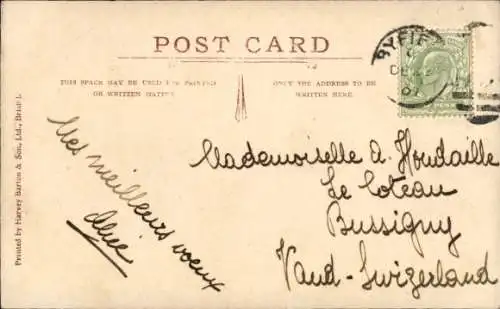 POST CARD
THIS SPACE MAY BE USED FOR PRINTED
OR WRITTEN MATTER
ONLY THE ADDRESS TO BE
WRITTEN HERE.
Printed by Harvey Barton & Son, Ltd., Bristol.
BYFIE
DE
Mes meilleurs voeux
Alice
Mademoiselle A. Houdaille
Le Coteau
Bussigny
Vaud - Swizerland